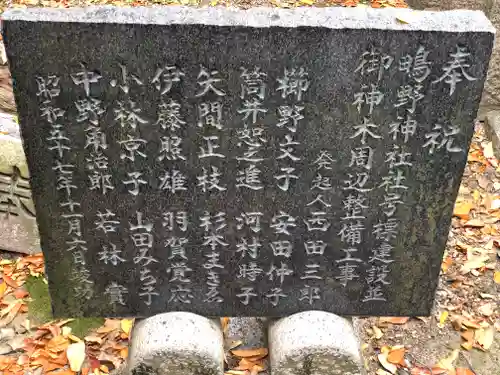 奉祝
鴫野神社社号標建設並
御神木周辺整備工事
発起人 西田三郎
櫛野文子 安田仲子
筒井恕之進 河村時子
矢間正枝 杉本まさゑ
伊藤照雄 羽賀覚応
小林京子 山田みち子
中野角治郎 若林貴
昭和五十七年十一月六日